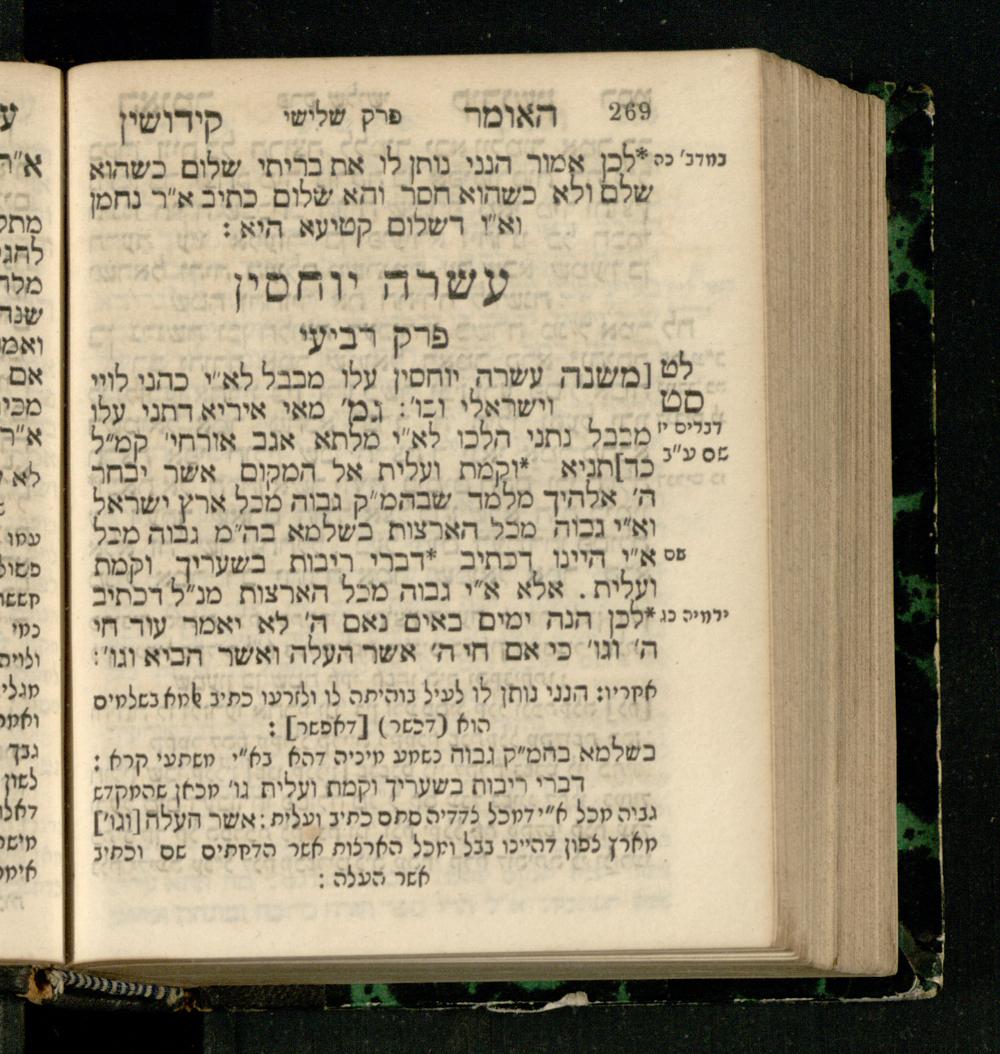 269 האומר פרק שלישי קידושין
במדב׳ כה *לכן אמור הנני נותן לו את בריתי שלום כשהוא
שלם ולא כשהוא חסר והא שלום כתיב א״ר נחמן
וא״ו דשלום קטיעא היא :
עשרה יוחסין
פרק רביעי
לט [משנה עשרה יוחסין עלו מבבל לא״י כהני לויי
סט וישראלי וכו׳: גמ׳ מאי איריא דתני עלו
דברים יז מבבל נתני הלכו לא״י מלתא אגב אורחי׳ קמ״ל
שם ע״ב כד]תניא *וקמת ועלית אל המקום אשר יבחר
ה׳ אלהיך מלמד שבהמ״ק גבוה מכל ארץ ישראל
וא״י גבוה מכל הארצות בשלמא בה״מ גבוה מכל
שם א״י היינו דכתיב *דברי ריבות בשעריך וקמת
ועלית. אלא א״י גבוה מכל הארצות מנ״ל דכתיב
ירמיה כג *לכן הנה ימים באים נאם ה׳ לא יאמר עוד חי
ה׳ וגו׳ כי אם חי ה׳ אשר העלה ואשר הביא וגו׳:
אקריו: הנני נותן לו לעיל בוהיתה לו ולזרעו כתיב שמא בשלמים
הוא (דכשר) [דאפשר] :
בשלמא בהמ״ק גבוה כשמע מיניה דהא בא״י משתעי קרא :
דברי ריבות בשעריך וקמת ועלית גו׳ מכאן שהמקדש
גביה מכל א״י דמכל לדדיה סתם כתיב ועלית: אשר העלה [וגו׳]
מארץ צפון דהיינו בבל ומכל הארצות אשר הדחתים שם וכתיב
אשר העלה :
ע
א״ר
מתק
לחגי
מלה
שנה
ואמ
אם
מכי
א״ר
לא
עמו
פסול
קששה
כמי
ולויה
מגלי
ואמר
גבך
לשון
דאלו
מישר
אימר